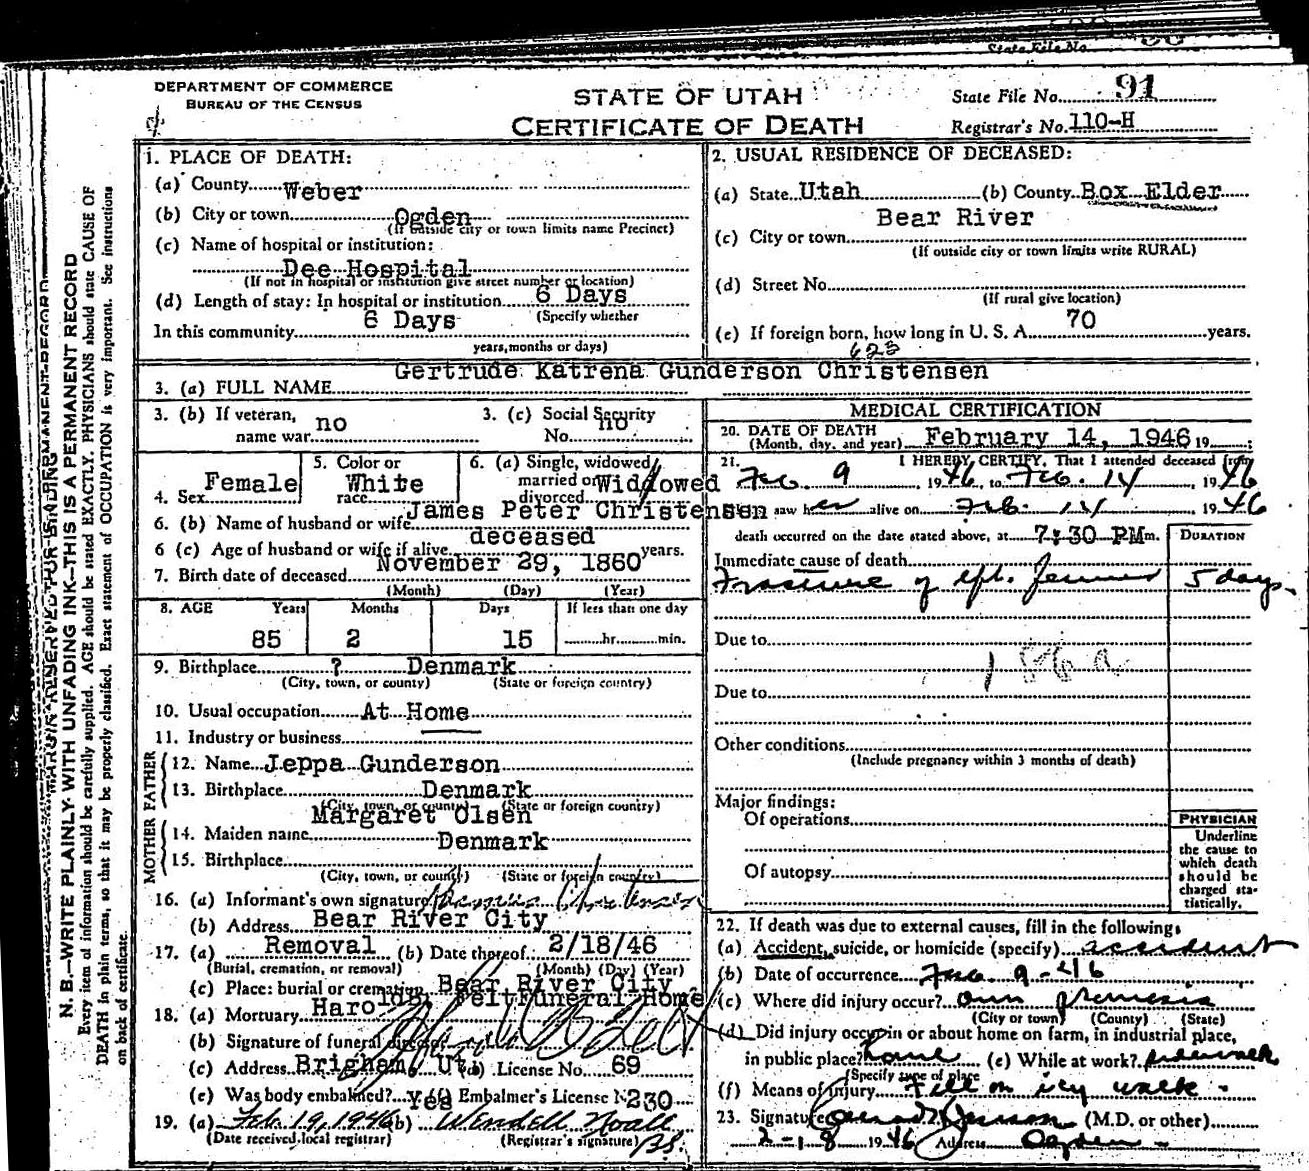 State File No.
DEPARTMENT OF COMMERCE
BUREAU OF THE CENSUS
STATE OF UTAH
CERTIFICATE OF DEATH
State File No. 91
Registrar's No. 110-H
N. B.—WRITE PLAINLY WITH UNFADING INK—THIS IS A PERMANENT RECORD
Every item of information should be carefully supplied. AGE should be stated EXACTLY. PHYSICIANS should state CAUSE OF
DEATH in plain terms, so that it may be properly classified. Exact statement of OCCUPATION is very important. See instructions
on back of certificate.
1. PLACE OF DEATH:
(a) County Weber
(b) City or town Ogden
(If outside city or town limits name Precinct)
(c) Name of hospital or institution:
Dee Hospital
(If not in hospital or institution give street number or location)
(d) Length of stay: In hospital or institution 6 Days
(Specify whether
In this community 6 Days
years, months or days)
2. USUAL RESIDENCE OF DECEASED:
(a) State Utah (b) County Box Elder
(c) City or town Bear River
(If outside city or town limits write RURAL)
(d) Street No.
(If rural give location)
(e) If foreign born, how long in U. S. A. 70 years.
623
3. (a) FULL NAME Gertrude Katrena Gunderson Christensen
3. (b) If veteran, name war no
3. (c) Social Security No. no
4. Sex Female
5. Color or race White
6. (a) Single, widowed married or divorced Widowed
6. (b) Name of husband or wife James Peter Christensen
6 (c) Age of husband or wife if alive deceased years.
7. Birth date of deceased November 29, 1860
(Month) (Day) (Year)
8. AGE Years Months Days If less than one day
85 2 15 hr. min.
9. Birthplace ? Denmark
(City, town, or county) (State or foreign country)
10. Usual occupation At Home
11. Industry or business
FATHER
12. Name Jeppa Gunderson
13. Birthplace Denmark
(City, town, or county) (State or foreign country)
MOTHER
14. Maiden name Margaret Olsen
15. Birthplace Denmark
(City, town, or county) (State or foreign country)
16. (a) Informant's own signature
(b) Address Bear River City
17. (a) Removal (b) Date thereof 2/18/46
(Burial, cremation, or removal) (Month) (Day) (Year)
(c) Place: burial or cremation Bear River City
18. (a) Mortuary Harold B. Felt Funeral Home
(b) Signature of funeral director Harold B Felt
(c) Address Brigham, Ut. (d) License No. 69
(e) Was body embalmed? Yes (f) Embalmer's License No. 230
19. (a) Feb. 19, 1946 (b) Wendell Noall
(Date received local registrar) (Registrar's signature)
MEDICAL CERTIFICATION
20. DATE OF DEATH
(Month, day, and year) February 14, 1946 19 ;
21. I HEREBY CERTIFY, That I attended deceased from
Feb. 9 1946, to Feb. 14, 1946
saw her alive on Feb. 14 1946
death occurred on the date stated above, at 7:30 PM m.
DURATION
Immediate cause of death
Fracture of left femur 5 days.
Due to
186a
Due to
Other conditions
(Include pregnancy within 3 months of death)
Major findings:
Of operations
Of autopsy
PHYSICIAN
Underline
the cause to
which death
should be
charged sta-
tistically.
22. If death was due to external causes, fill in the following:
(a) Accident, suicide, or homicide (specify) accident
(b) Date of occurrence Feb. 9-46
(c) Where did injury occur? own premesis
(City or town) (County) (State)
(d) Did injury occur in or about home on farm, in industrial place,
in public place? home (e) While at work? sidewalk
(Specify type of place)
(f) Means of injury Fell on icy walk -
23. Signature (M.D. or other)
2-18 1946 Address Ogden -